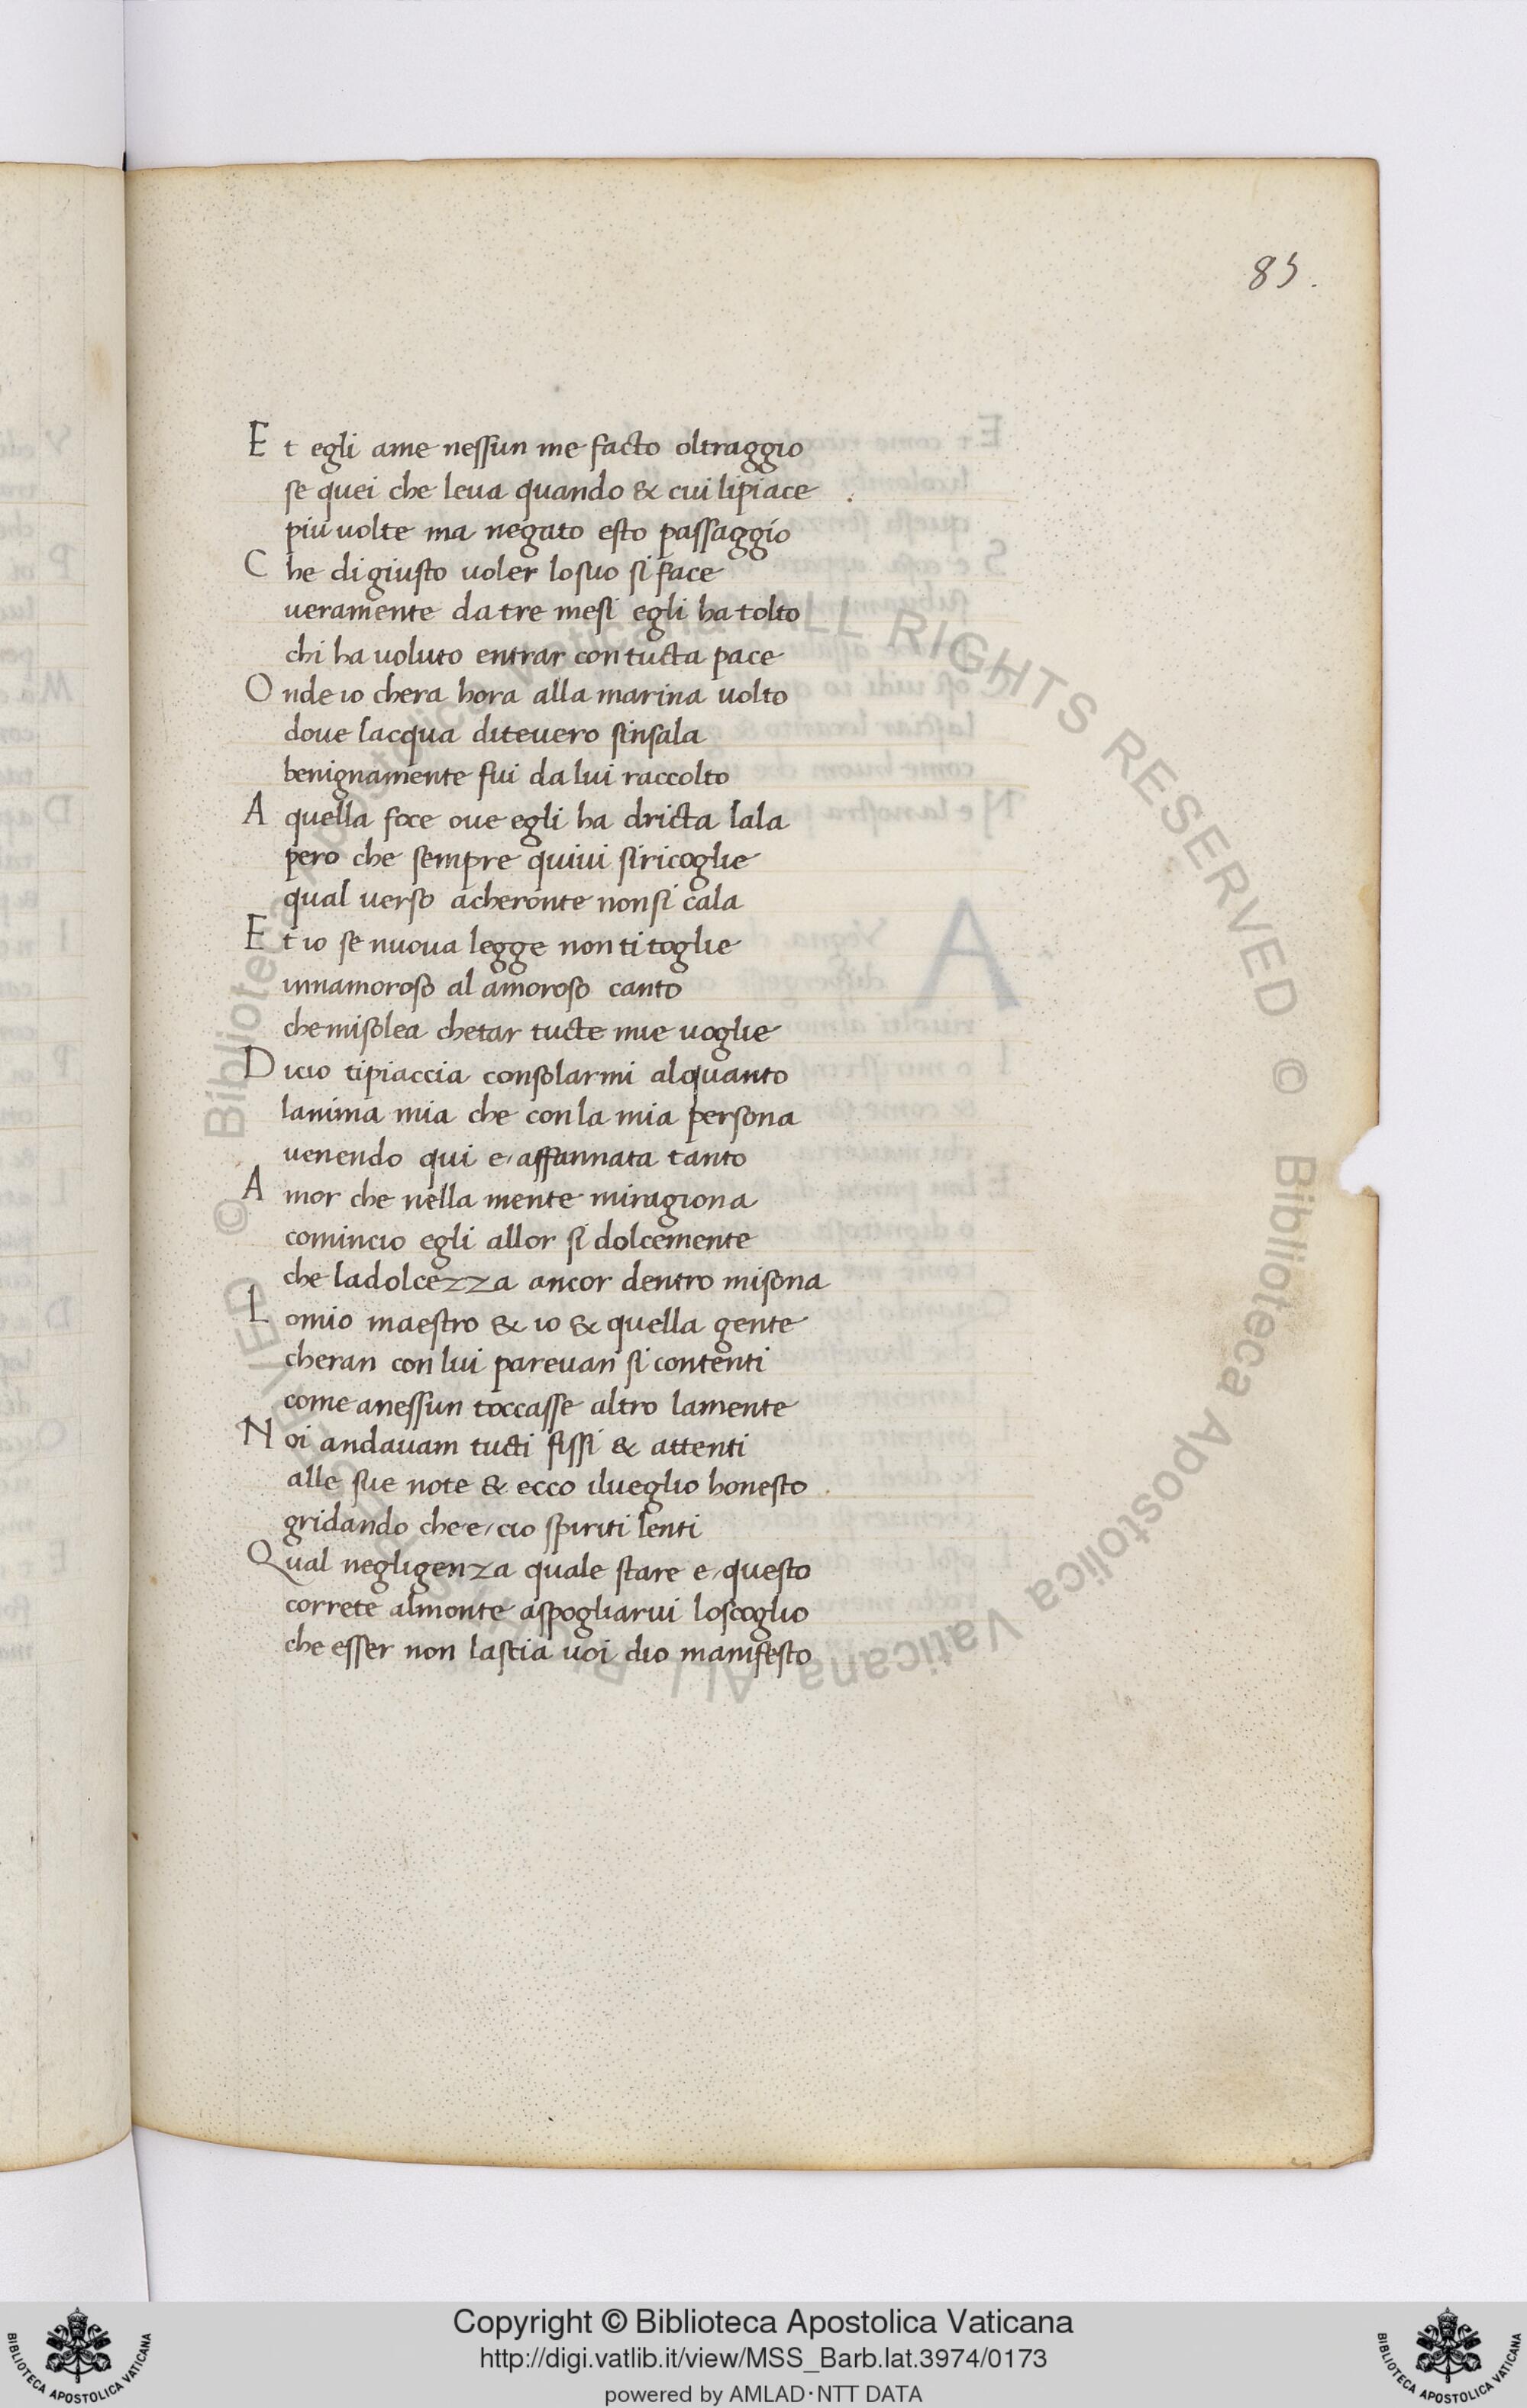 85.
Et egli ame nessun me facto oltraggio
se quei che leua quando & cui lipiace
piu uolte ma negato esto passaggio
Che digiusto uoler losuo si face
ueramente da tre mesi egli ha tolto
chi ha uoluto entrar con tucta pace
Onde io chera hora alla marina uolto
doue lacqua diteuero sinsala
benignamente fui da lui raccolto
A quella foce oue egli ha dricta lala
pero che sempre quiui siricoglie
qual uerso acheronte non si cala
Et io se nuoua legge non ti toglie
innamoroso al amoroso canto
che misolea chetar tucte mie uoglie
Dicio tipiaccia consolarmi alquanto
lanima mia che con la mia persona
uenendo qui e, affannata tanto
Amor che nella mente miragiona
comincio egli allor si dolcemente
che ladolcezza ancor dentro misona
Lo mio maestro & io & quella gente
cheran con lui pareuan si contenti
come anessun toccasse altro lamente
Noi andauam tucti fissi & attenti
alle sue note & ecco ilueglio honesto
gridando che e, cio spiriti lenti
Qual negligenza quale stare e, questo
correte almonte aspogliarui loscoglio
che esser non lascia uoi dio manifesto
© Biblioteca Apostolica Vaticana ALL RIGHTS RESERVED © Biblioteca Apostolica Vaticana ALL RIGHTS RESERVED
Copyright © Biblioteca Apostolica Vaticana
http://digi.vatlib.it/view/MSS_Barb.lat.3974/0173
powered by AMLAD·NTT DATA
BIBLIOTECA APOSTOLICA VATICANA
BIBLIOTECA APOSTOLICA VATICANA